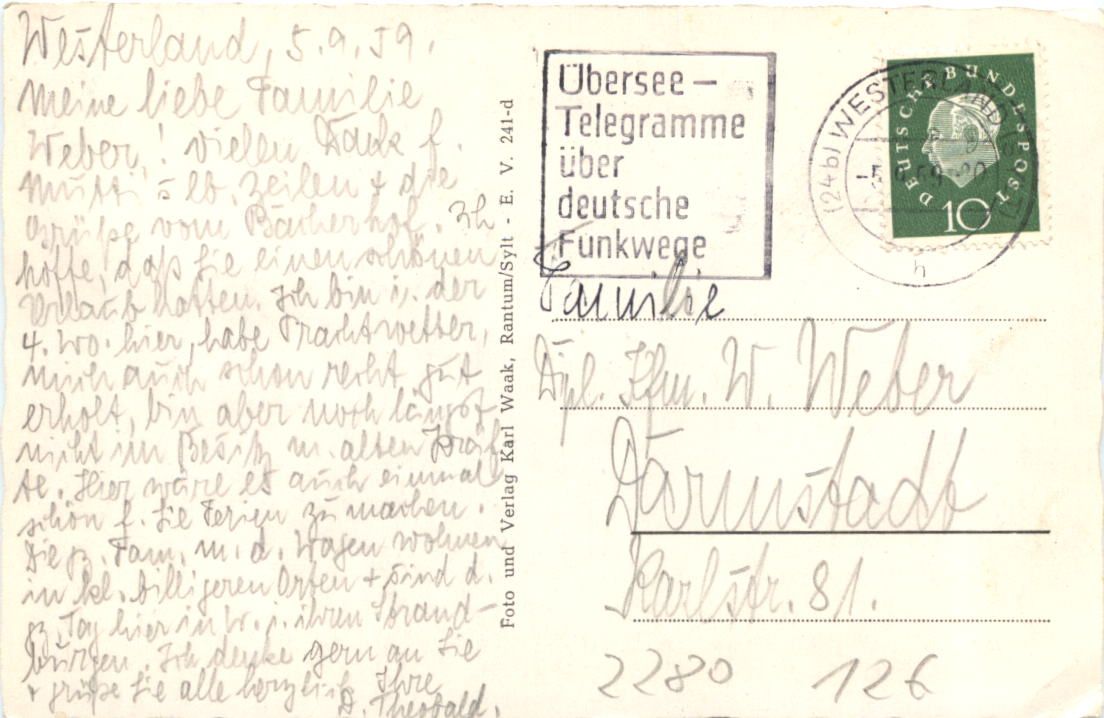 Westerland, 5.9.59.
Meine liebe Familie
Weber! Vielen Dank f.
Mutti's lb. Zeilen + die
Grüße vom Bäckerhof. Ich
hoffe, daß Sie einen schönen
Urlaub hatten. Ich bin i. der
4. Wo. hier, habe Prachtwetter,
mich auch schon recht gut
erholt, bin aber noch längst
nicht im Besitz m. alten Kräf-
te. Hier wäre es auch einmal
schön f. Sie Ferien zu machen.
Die gz. Fam. m. d. Wagen wohnen
in kl. billigeren Orten + sind d.
gz. Tag hier in W. i. ihren Strand-
burgen. Ich denke gern an Sie
+ grüße Sie alle herzlich Ihre
D. Theobald.
Foto und Verlag Karl Waak, Rantum/Sylt - E. V. 241-d
Übersee-
Telegramme
über
deutsche
Funkwege
(24b) WESTERLAND
h
DEUTSCHE BUNDESPOST
10
Familie
Dipl. Kfm. W. Weber
Darmstadt
Karlstr. 81.
2280 126